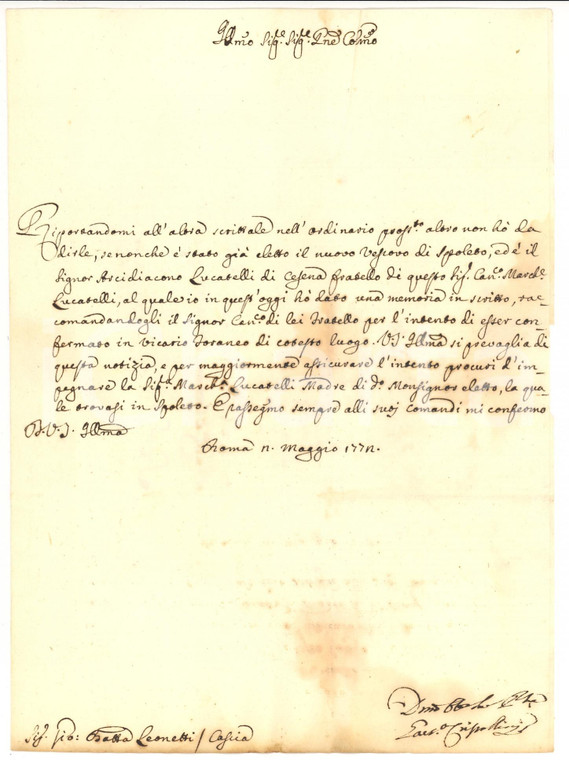 Illmo Sigr. Sigr. Pne Colmo
Riportandomi all'altra scrittale nell'ordinario pross.to altro non hò da
dirle, senonche è stato già eletto il nuovo Vescovo di Spoleto, ed è il
Signor Arcidiacono Lucatelli di Cesena fratello di questo Sig. Can.co March.e
Lucatelli, al quale io in quest'oggi hò dato una memoria in scritto, rac-
comandandogli il Signor Can.co di lei fratello per l'intento di esser con-
fermato in Vicario Foraneo di cotesto luogo. VS Illma si prevaglia di
questa notizia, e per maggiormente assicurare l'intento procuri d'im-
pegnare la Sig.ra March.a Lucatelli Madre di d.o Monsignor eletto, la qua-
le trovasi in Spoleto. E rassegno sempre alli suoj comandi mi confermo
D. V. S. Illma
Roma Maggio 1772.
Sig. Gio: Batta Leonetti / Cascia